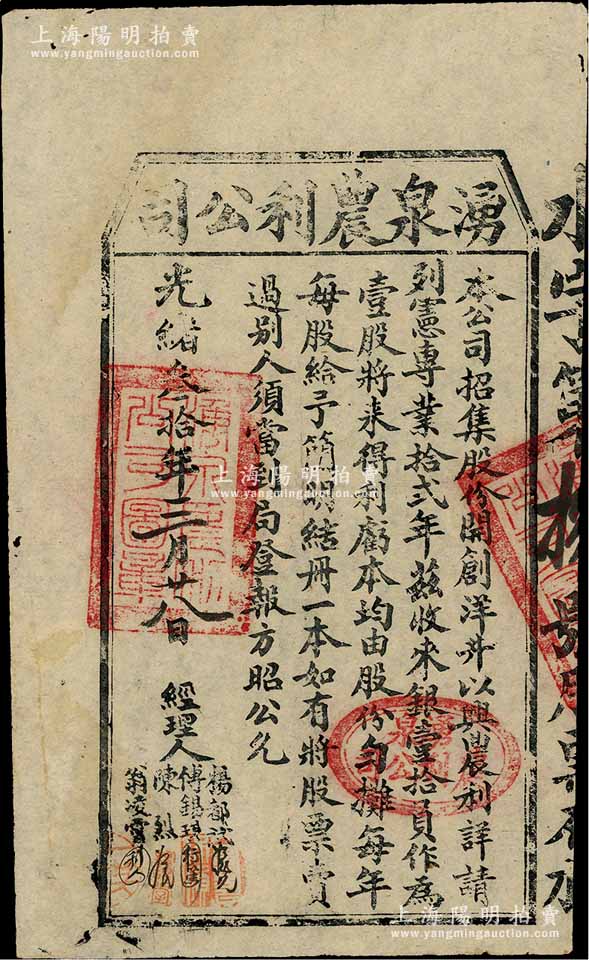 上海陽明拍賣
www.yangmingauction.com
湧泉農利公司
本公司招集股份開創洋井以興農利詳請
列憲専業拾弍年茲收来銀壹拾員作為
壹股將来得利虧本均由股份勻攤每年
每股給予簡明結冊一本如有將股票賣
過別人須當到局登報方昭公允
光緒叁拾年三月廿八日
經理人
楊都
傅錫琪
陳烈
翁凌霄
上海陽明拍賣
www.yangmingauction.com
上海陽明拍賣
www.yangmingauction.com